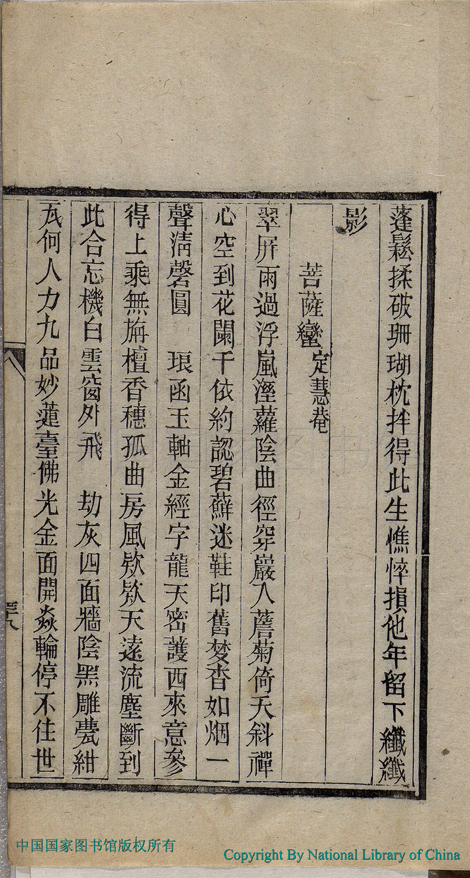 蓬鬆揉破珊瑚枕拌得此生憔悴損他年留下纖纖
影
菩薩蠻 定慧菴
翠屏雨過浮嵐溼蘿陰曲徑穿巖入薝菊倚天斜禪
心空到花闌干依約認碧蘚迷鞋印舊梵杳如烟一
聲清磬圓　琅函玉軸金經字龍天密護西來意參
得上乘無旃檀香穗孤曲房風欵欵天遠流塵斷到
此合忘機白雲窗外飛　劫灰四面牆陰黑雕甍紺
瓦何人力九品妙蓮臺佛光金面開焱輪停不住世
中国国家图书馆版权所有
Copyright By National Library of China